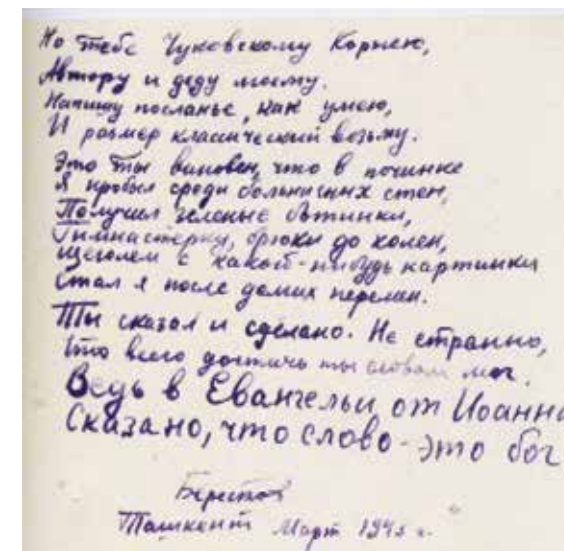 Но тебе Чуковскому Корнею,
Автору и деду моему.
Напишу посланье, как умею,
И размер классический возьму.
Это ты виновен, что в починке
Я пробыл среди больничных стен,
Получил зеленые ботинки,
Гимнастерку, брюки до колен,
Щеголем с какой-нибудь картинки
Стал я после даших перемен.
Ты сказал и сделано. Не странно,
Что всего достичь ты словом мог.
Ведь в Евангельи от Иоанна
Сказано, что слово - это бог
Берестов
Ташкент Март 194 г.